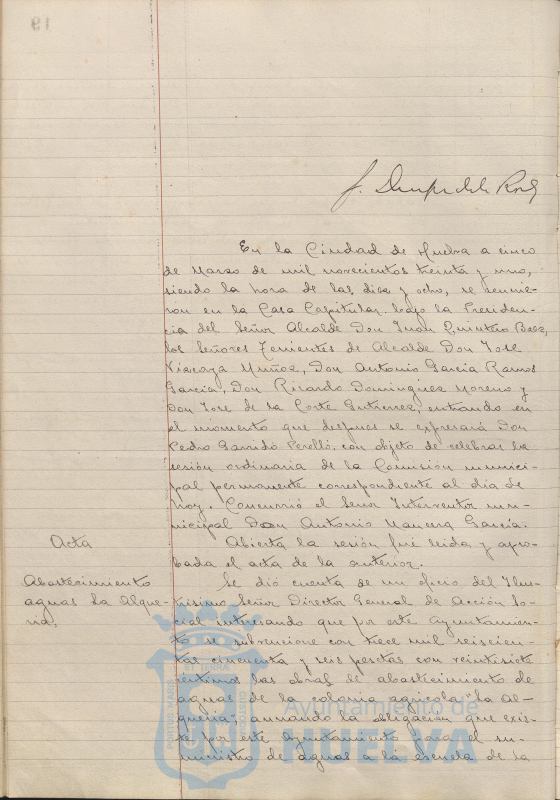 En la Ciudad de Huelva a cinco
de Marzo de mil novecientos treinta y uno,
siendo la hora de las diez y ocho, se reunie-
ron en la Casa Capitular, bajo la Presiden-
cia del Señor Alcalde Don Juan Quintero Baez,
los Señores Tenientes de Alcalde Don José
Vizcaya Muñoz, Don Antonio Garcia Ramos
Garcia, Don Ricardo Dominguez Moreno y
Don José de la Corte Gutierrez, entrando en
el momento que despues se expresará Don
Pedro Garrido Perelló, con objeto de celebrar la
sesión ordinaria de la Comisión munici-
pal permanente correspondiente al dia de
hoy. Concurrió el Señor Interventor mu-
nicipal Don Antonio Garcia.
Acta
Abierta la sesión fué leida y apro-
bada el acta de la anterior.
Abastecimiento
aguas La Alque-
ria.
Se dió cuenta de un oficio del Ilus-
trisimo Señor Director General de Acción So-
cial interesando que por este Ayuntamien-
to se subvencione con trece mil seiscien-
tas cincuenta y seis pesetas con veintisiete
centimos las obras de abastecimiento de
aguas de la colonia agricola "La Al-
queria", anulando la obligacion que exis-
te por este Ayuntamiento para el su-
ministro de aguas a la escuela de la
Ayuntamiento de
HUELVA